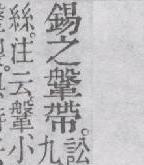 錫之鞶帶。訟
九
絲。注云鞶小